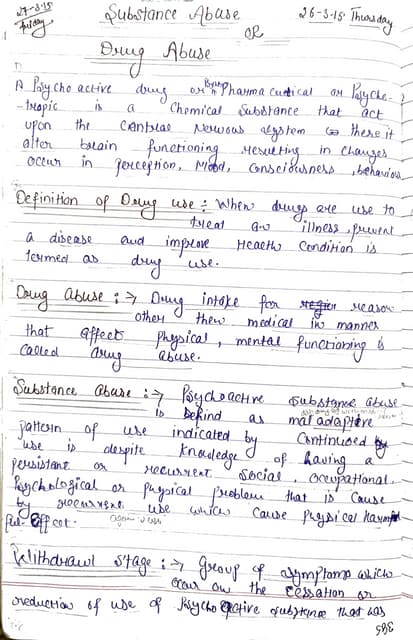 27-3-15
Friday
Substance Abuse
26-3-15 Thursday
OR
Drug Abuse
A Psycho active drug or Pharmacutical or Psyche-
tropic is a Chemical Substance that act
upon the central Nervous system there it
alter brain functioning resulting in changes
occur in perception, Mood, consciousness, behaviour
Definition of Drug use : When drugs are use to
treat an illness, prevent
a disease and improve Health condition is
termed as drug use.
Drug Abuse : → Drug intake for reason
other then medical in manner
that affect physical, mental functioning is
called drug abuse.
Substance Abuse : → Psychoactive substance abuse
is behind as maladaptive
pattern of use indicated by continued
use is despite knowledge of having a
persistant or recurrent social, occupational,
Psychological or physical problem that is cause
by recurrent use which cause physical harm
ful effect.
again & use
Withdrawl stage : → Group of symptoms which
occur on the cessation or
reduction of use of Psychoactive substance that was
365